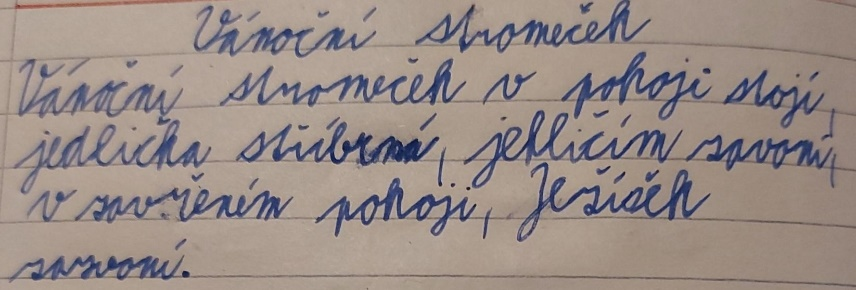 Vánoční stromeček
Vánoční stromeček v pokoji stojí,
jedlička stříbrná, jehličím zavoní,
v zavřeném pokoji, Ježíšek
zazvoní.